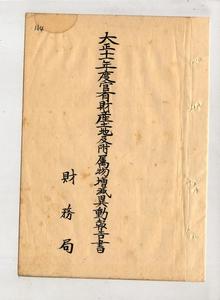 大正十一年度官有財産土地及附属物増減異動報告書
財務局